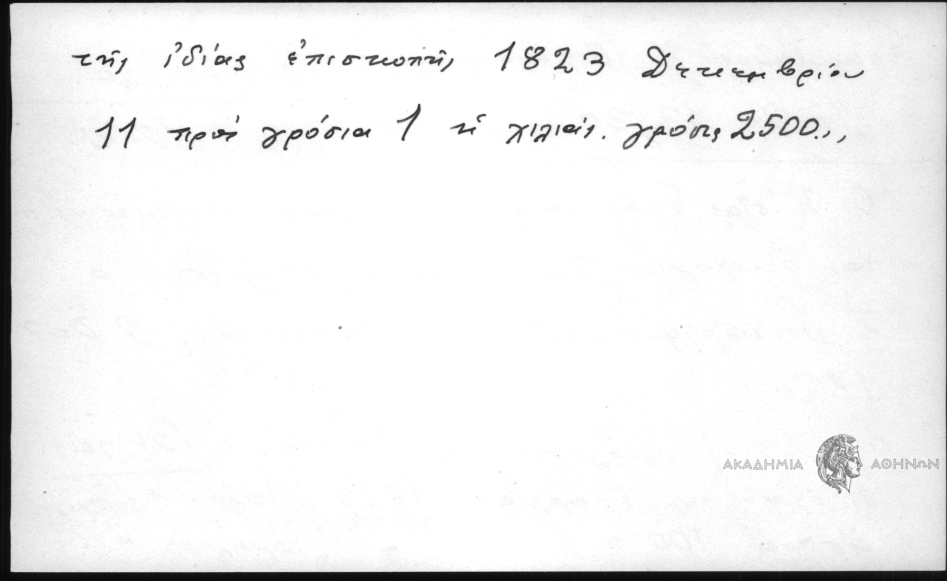 τῆς ἰδίας ἐπισκοπῆς 1823 Δεκεμβρίου
11 πρὸς γρόσια 1 ἡ χιλιάς. γρόσια 2500..,
ΑΚΑΔΗΜΙΑ ΑΘΗΝΩΝ